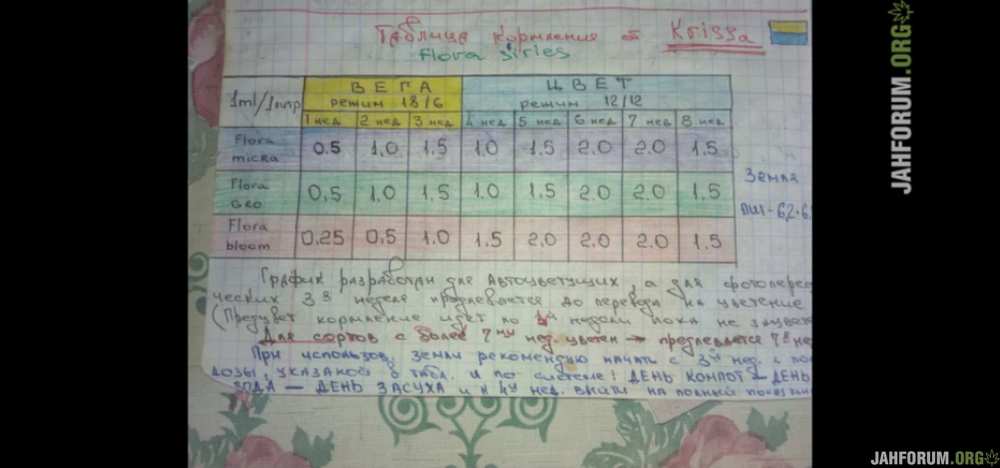 Таблица кормления от Krissa
Flora siries
1ml/1литр ВЕГА режим 18/6 ЦВЕТ режим 12/12
1 нед 2 нед 3 нед 4 нед 5 нед 6 нед 7 нед 8 нед
Flora micra 0.5 1.0 1.5 1.0 1.5 2.0 2.0 1.5
Flora Gro 0,5 1,0 1,5 1,0 1,5 2,0 2.0 1.5
Flora bloom 0,25 0,5 1.0 1.5 2,0 2.0 2.0 1.5
Земля
График разработан для Автоцветущих, а для фотоперео
ческих 3я неделя продлевается до перевода на цветение
(Предцвет кормление идет по недели пока не зацвете
Для сортов с более 7ми нед. цветен → продлевается 7я нед
При использов. земли рекомендую начать с 3й нед. с
дозы, указаной в табл. и по системе: ДЕНЬ КОМПОТ — ДЕНЬ
ВОДА — ДЕНЬ ЗАСУХА и к 4й нед. выйти на полный
JAHFORUM.ORG
JAHFORUM.ORG